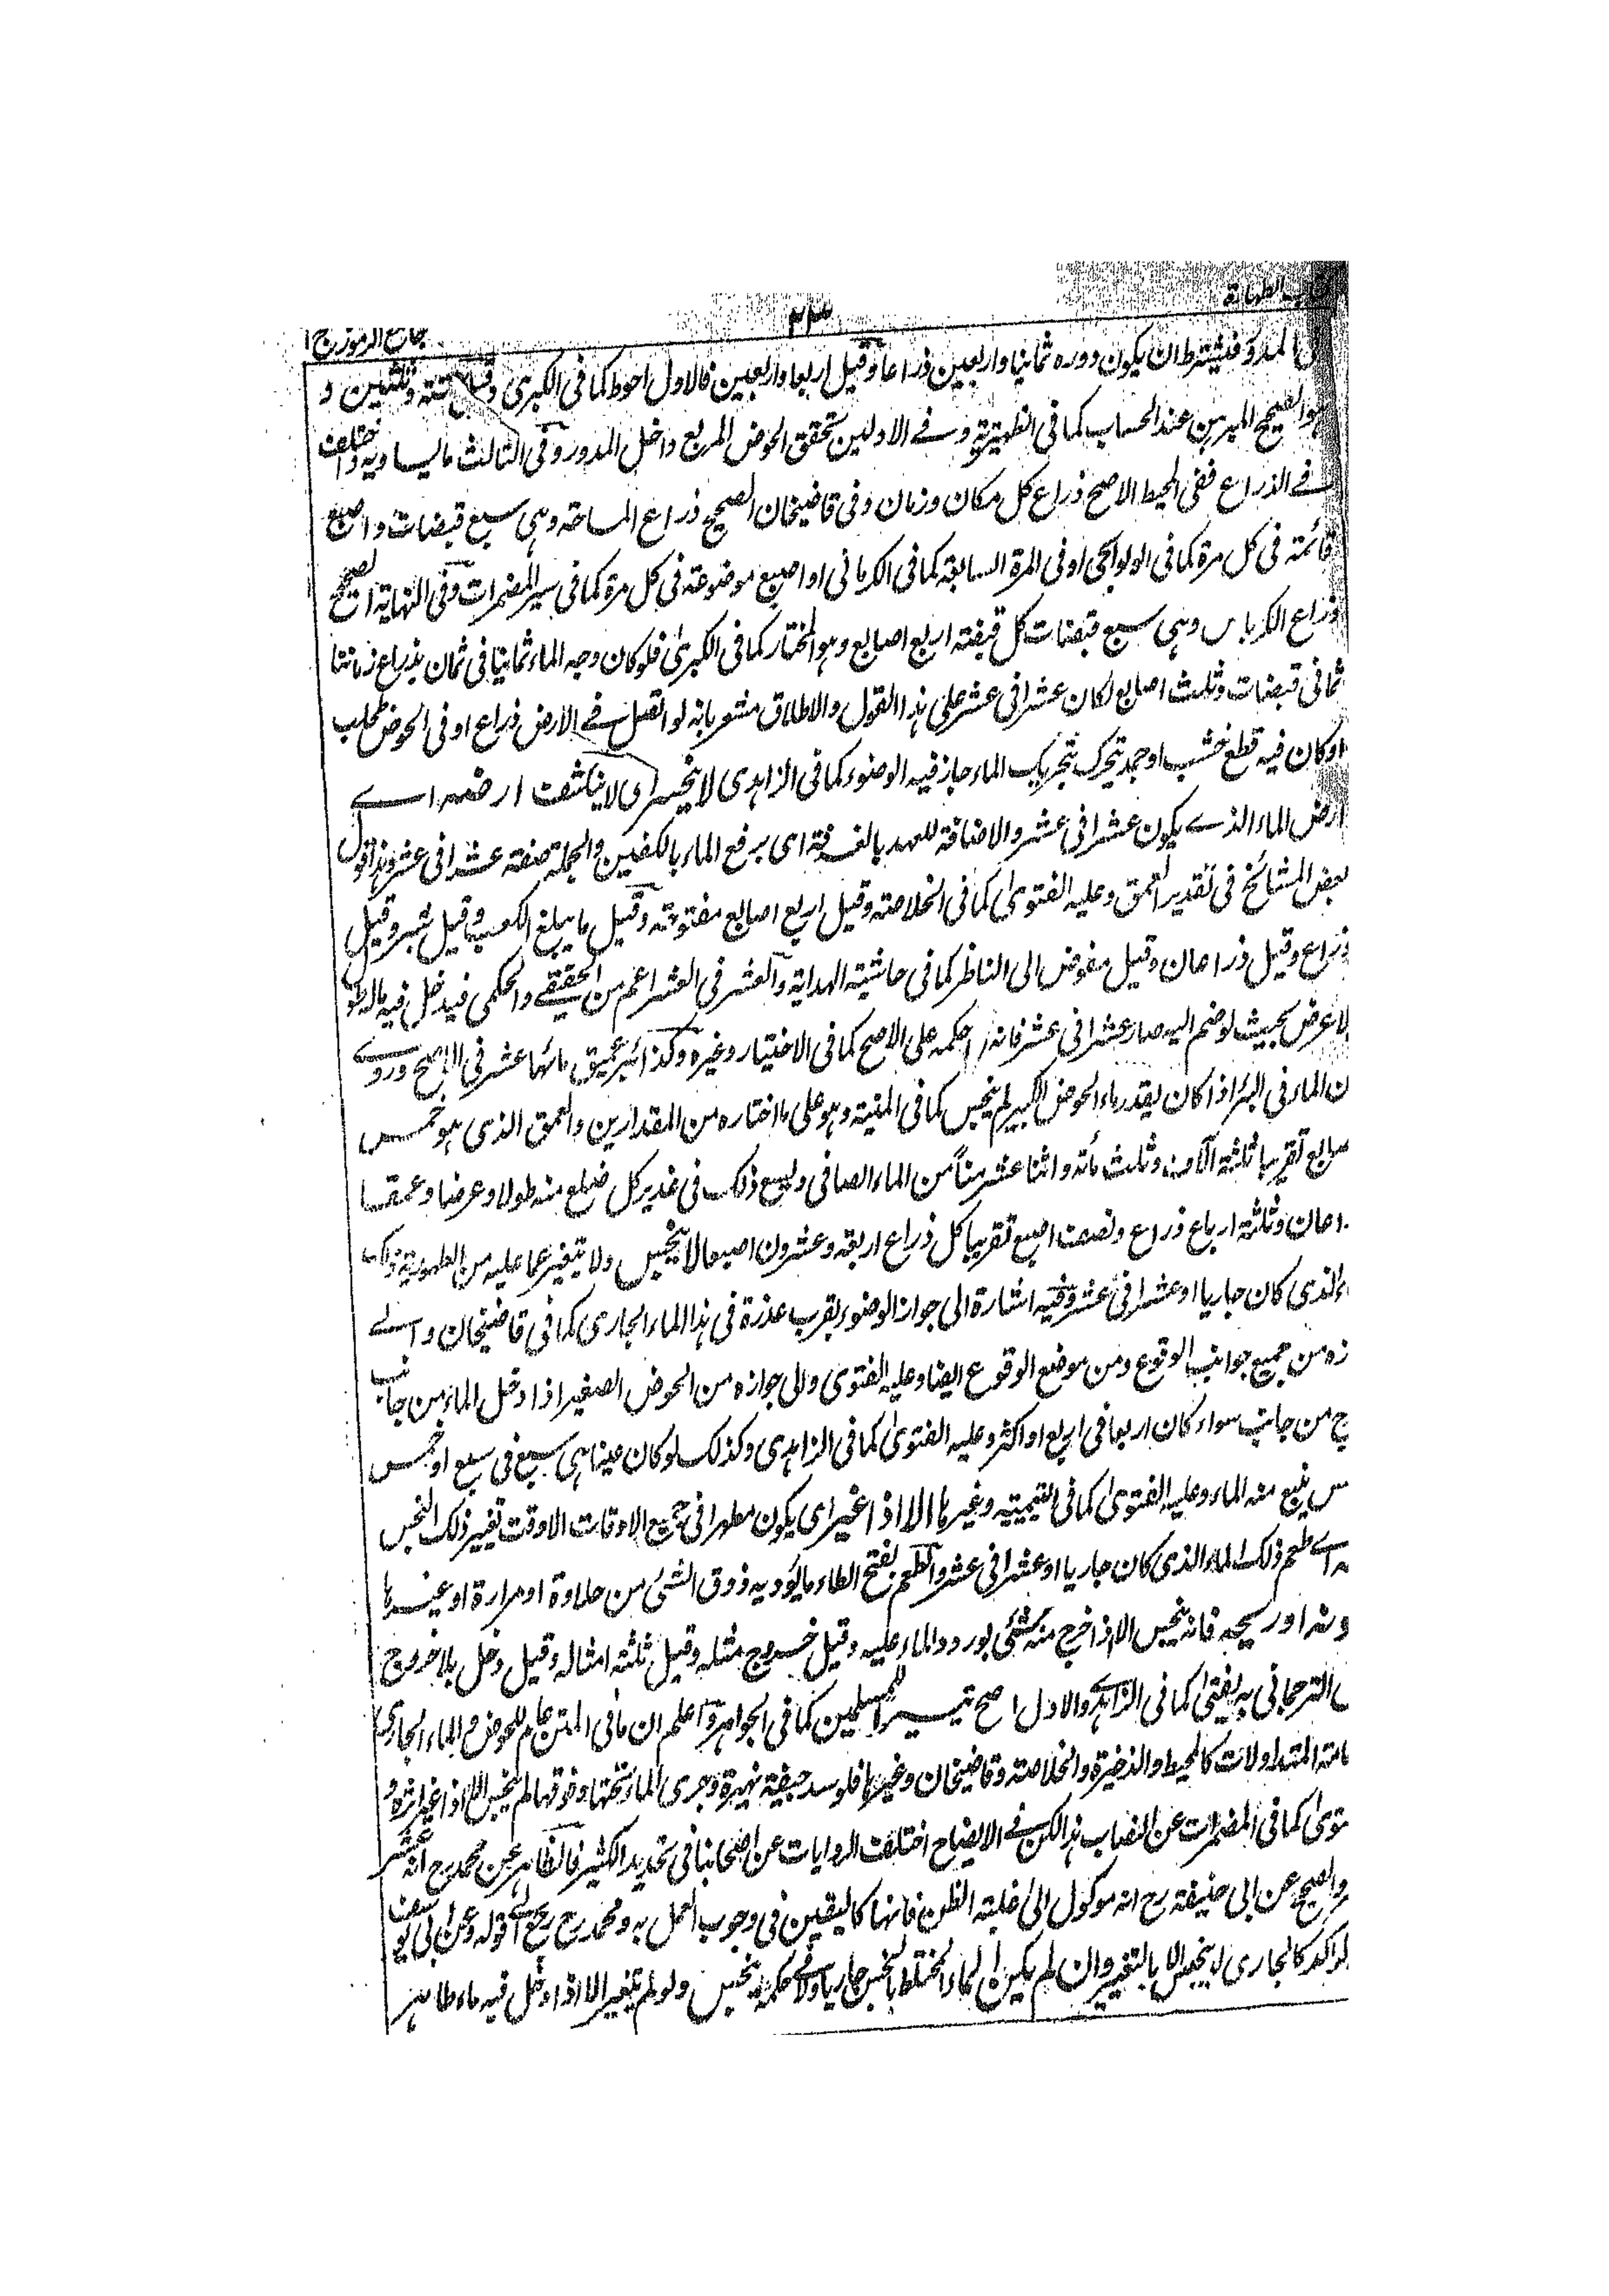 كتاب الطهارة
٣٣
جامع الرموز ج ا
المدور فيشترط ان يكون دوره ثمانيا واربعين ذراعا وقيل اربعا واربعين فالاول احوط كما فى الكبرى وقيل ستة وثلثين و
هو الصحيح المبرهن عند الحساب كما فى الظهيرية وفے الاولين يتحقق الحوض المربع داخل المدور وفى الثالث ما يساويه واختلف
فے الذراع ففى المحيط الاصح ذراع كل مكان وزمان وفى قاضيخان الصحيح ذراع المساحة وهى سبع قبضات واصبع
قائمة فى كل مرة كما فى الولوالجى او فى المرة السابعة كما فى الكرمانى او اصبع موضوعة فى كل مرة كما فى سير المضمرات وفى النهاية الصحيح
ذراع الكرباس وهى سبع قبضات كل قبضة اربع اصابع وهو المختار كما فى الكبرىٰ فلو كان وجه الماء ثمانيا فى ثمان بذراع زماننا
ثمانى قبضات وثلث اصابع لكان عشرا فى عشر على هذا القول والاطلاق مشعر بانه لو اتصل فے الارض ذراع او فى الحوض طحلب
او كان فيه قطع خشب او جمد يتحرك بتحريك الماء جاز فيه الوضوء كما فى الزاهدى لا ينحسر اى لا ينكشف ارضه اے
ارض الماء الذے يكون عشرا فى عشر والاضافة للعهد بالغرفة اى برفع الماء بالكفين والجملة صفة عشرا فى عشر وهذا قول
بعض المشائخ فى تقدير العمق وعليه الفتوىٰ كما فى الخلاصة وقيل اربع اصابع مفتوحة وقيل ما يبلغ الكعب وقيل شبر وقيل
ذراع وقيل ذراعان وقيل مفوض الى الناظر كما فى حاشية الهداية والعشر فى العشر اعم من الحقيقے والحكمى فيدخل فيه ما له طول
بلا عرض بحيث لو ضم اليه صار عشرا فى عشر فانه حكمه على الاصح كما فى الاختيار وغيره وكذا بئر عميق ماؤها عشر فى الاصح وروے
ن الماء فى البئر اذا كان بقدر ماء الحوض الكبير لم ينجس كما فى المنية وهو على ما اختاره من المقدارين والعمق الذى هو خمس
صابع تقريبا ثلثة آلاف وثلث مائة واثنا عشر منا من الماء الصافى ويسع ذلك فى غدير كل ضلع منه طولا وعرضا وعمقا
راعان وثلثة ارباع ذراع ونصف اصبع تقريبا كل ذراع اربعة وعشرون اصبعا لا ينجس ولا يتغير عما عليه من الطهورية ذلك
الذى كان جاريا او عشرا فى عشر وفيه اشارة الى جواز الوضوء بقرب عذرة فى هذا الماء الجارى كما فى قاضيخان والے
زه من جميع جوانب الوقوع ومن موضع الوقوع ايضا وعليه الفتوى والى جوازه من الحوض الصغير اذا دخل الماء من جانب
ج من جانب سواء كان اربعا فى اربع او اكثر وعليه الفتوىٰ كما فى الزاهدى وكذلك لو كان عينا هى سبع فى سبع او خمس
س ينبع منه الماء وعليه الفتوىٰ كما فى اليتيمية وغيرها الا اذا غير اى يكون مطهرا فى جميع الاوقات الا وقت تغيير ذلك النجس
ه اے طعم ذلك الماء الذى كان جاريا او عشرا فى عشر والطعم بفتح الطاء ما يؤديه ذوق الشئ من حلاوة او مرارة او غيرها
ونه او ريحه فانه ينجس الا اذا خرج منه شئ بورود الماء عليه وقيل خروج مثله وقيل ثلثة امثاله وقيل دخل بلا خروج
الترجمانى به يفتى كما فى الزاهدے والاول اصح تيسيرا للمسلمين كما فى الجواهر واعلم ان ما فى المتن عام للحوض والماء الجارى
امة المتداولات كالمحيط والذخيرة والخلاصة وقاضيخان وغيرها فلو سد جيفة نهيرة وجرى الماء تحتها وفوقها لم ينجس الا اذا غير اثره و
توىٰ كما فى المضمرات عن النصاب هذا لكن فے الايضاح اختلف الروايات عن اصحابنا فى تحديد الكثير فالظاهر عن محمد رح انه عشر
والصحيح عن ابى حنيفة رح انه موكول الى غلبة الظن فانها كاليقين فى وجوب العمل به ومحمد رح رجع الے قوله وعن ابى يوسف
لراكد كالجارى لا ينجس الا بالتغير وان لم يكن الماء المختلط بالنجس جاريا ولا فے حكمه ينجس ولو لم يتغير الا اذا دخل فيه ماء طاهر